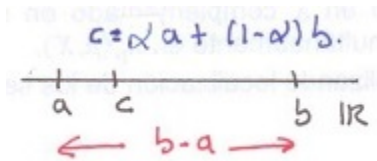 c = αa + (1-α) b.
a c b ℝ
b-a